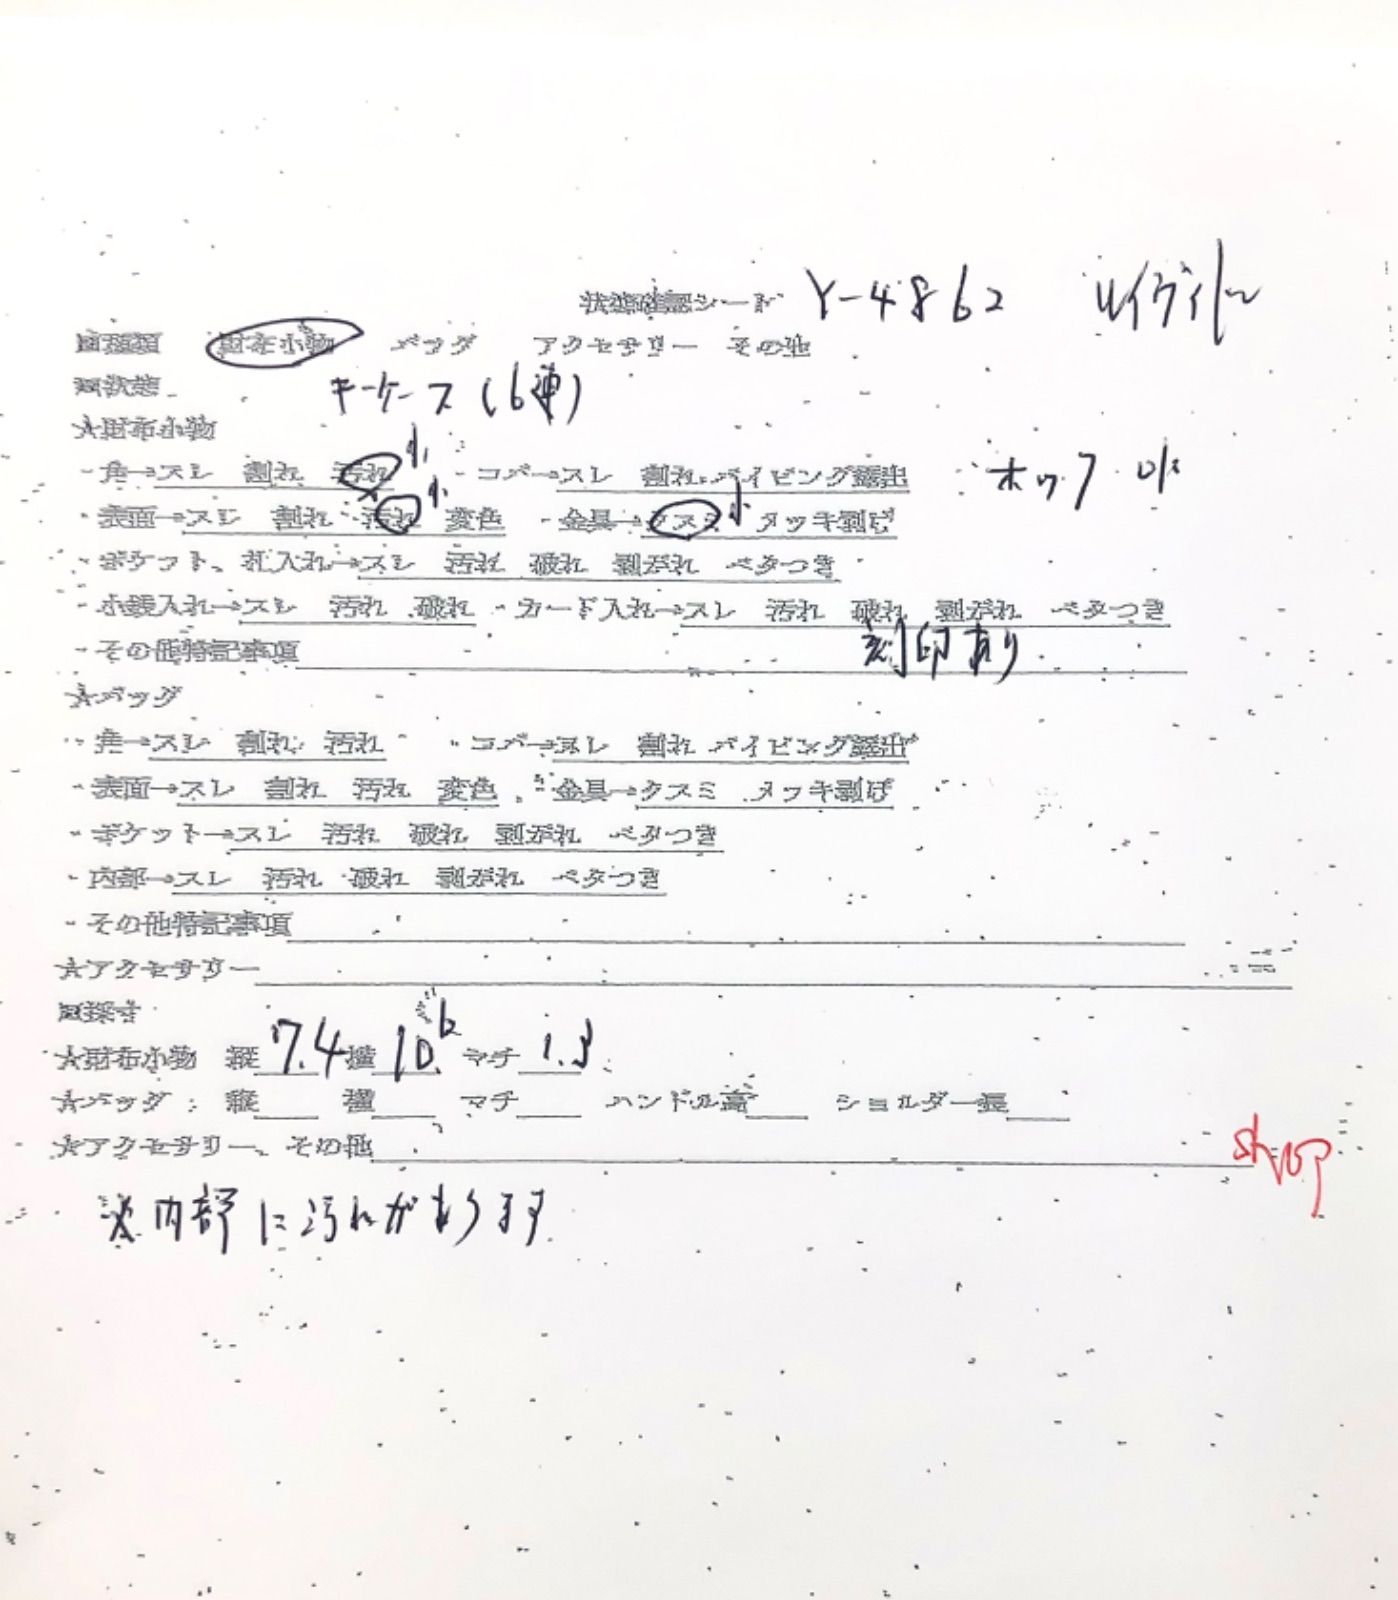 状態確認シート Y-4862 ルイヴィトン
□種類 財布小物 バッグ アクセサリー その他
□状態 キーケース(6連)
★財布小物
・角→スレ 割れ 汚れ 小 ・コバ→スレ 割れ パイピング露出 ホック OK
・表面→スレ 割れ 汚れ 小 変色 ・金具→クスミ 小 メッキ剥げ
・ポケット、札入れ→スレ 汚れ 破れ 剥がれ ベタつき
・小銭入れ→スレ 汚れ 破れ ・カード入れ→スレ 汚れ 破れ 剥がれ ベタつき
・その他特記事項 刻印あり
★バッグ
・角→スレ 割れ 汚れ ・コバ→スレ 割れ パイピング露出
・表面→スレ 割れ 汚れ 変色 ・金具→クスミ メッキ剥げ
・ポケット→スレ 汚れ 破れ 剥がれ ベタつき
・内部→スレ 汚れ 破れ 剥がれ ベタつき
・その他特記事項
★アクセサリー
□採寸
★財布小物 縦 7.4 横 10.6 マチ 1.3
★バッグ: 縦 横 マチ ハンドル高 ショルダー長
★アクセサリー、その他
※内部に汚れがあります